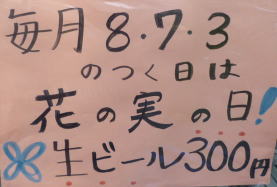 毎月8・7・3
のつく日は
花の実の日!
生ビール300円